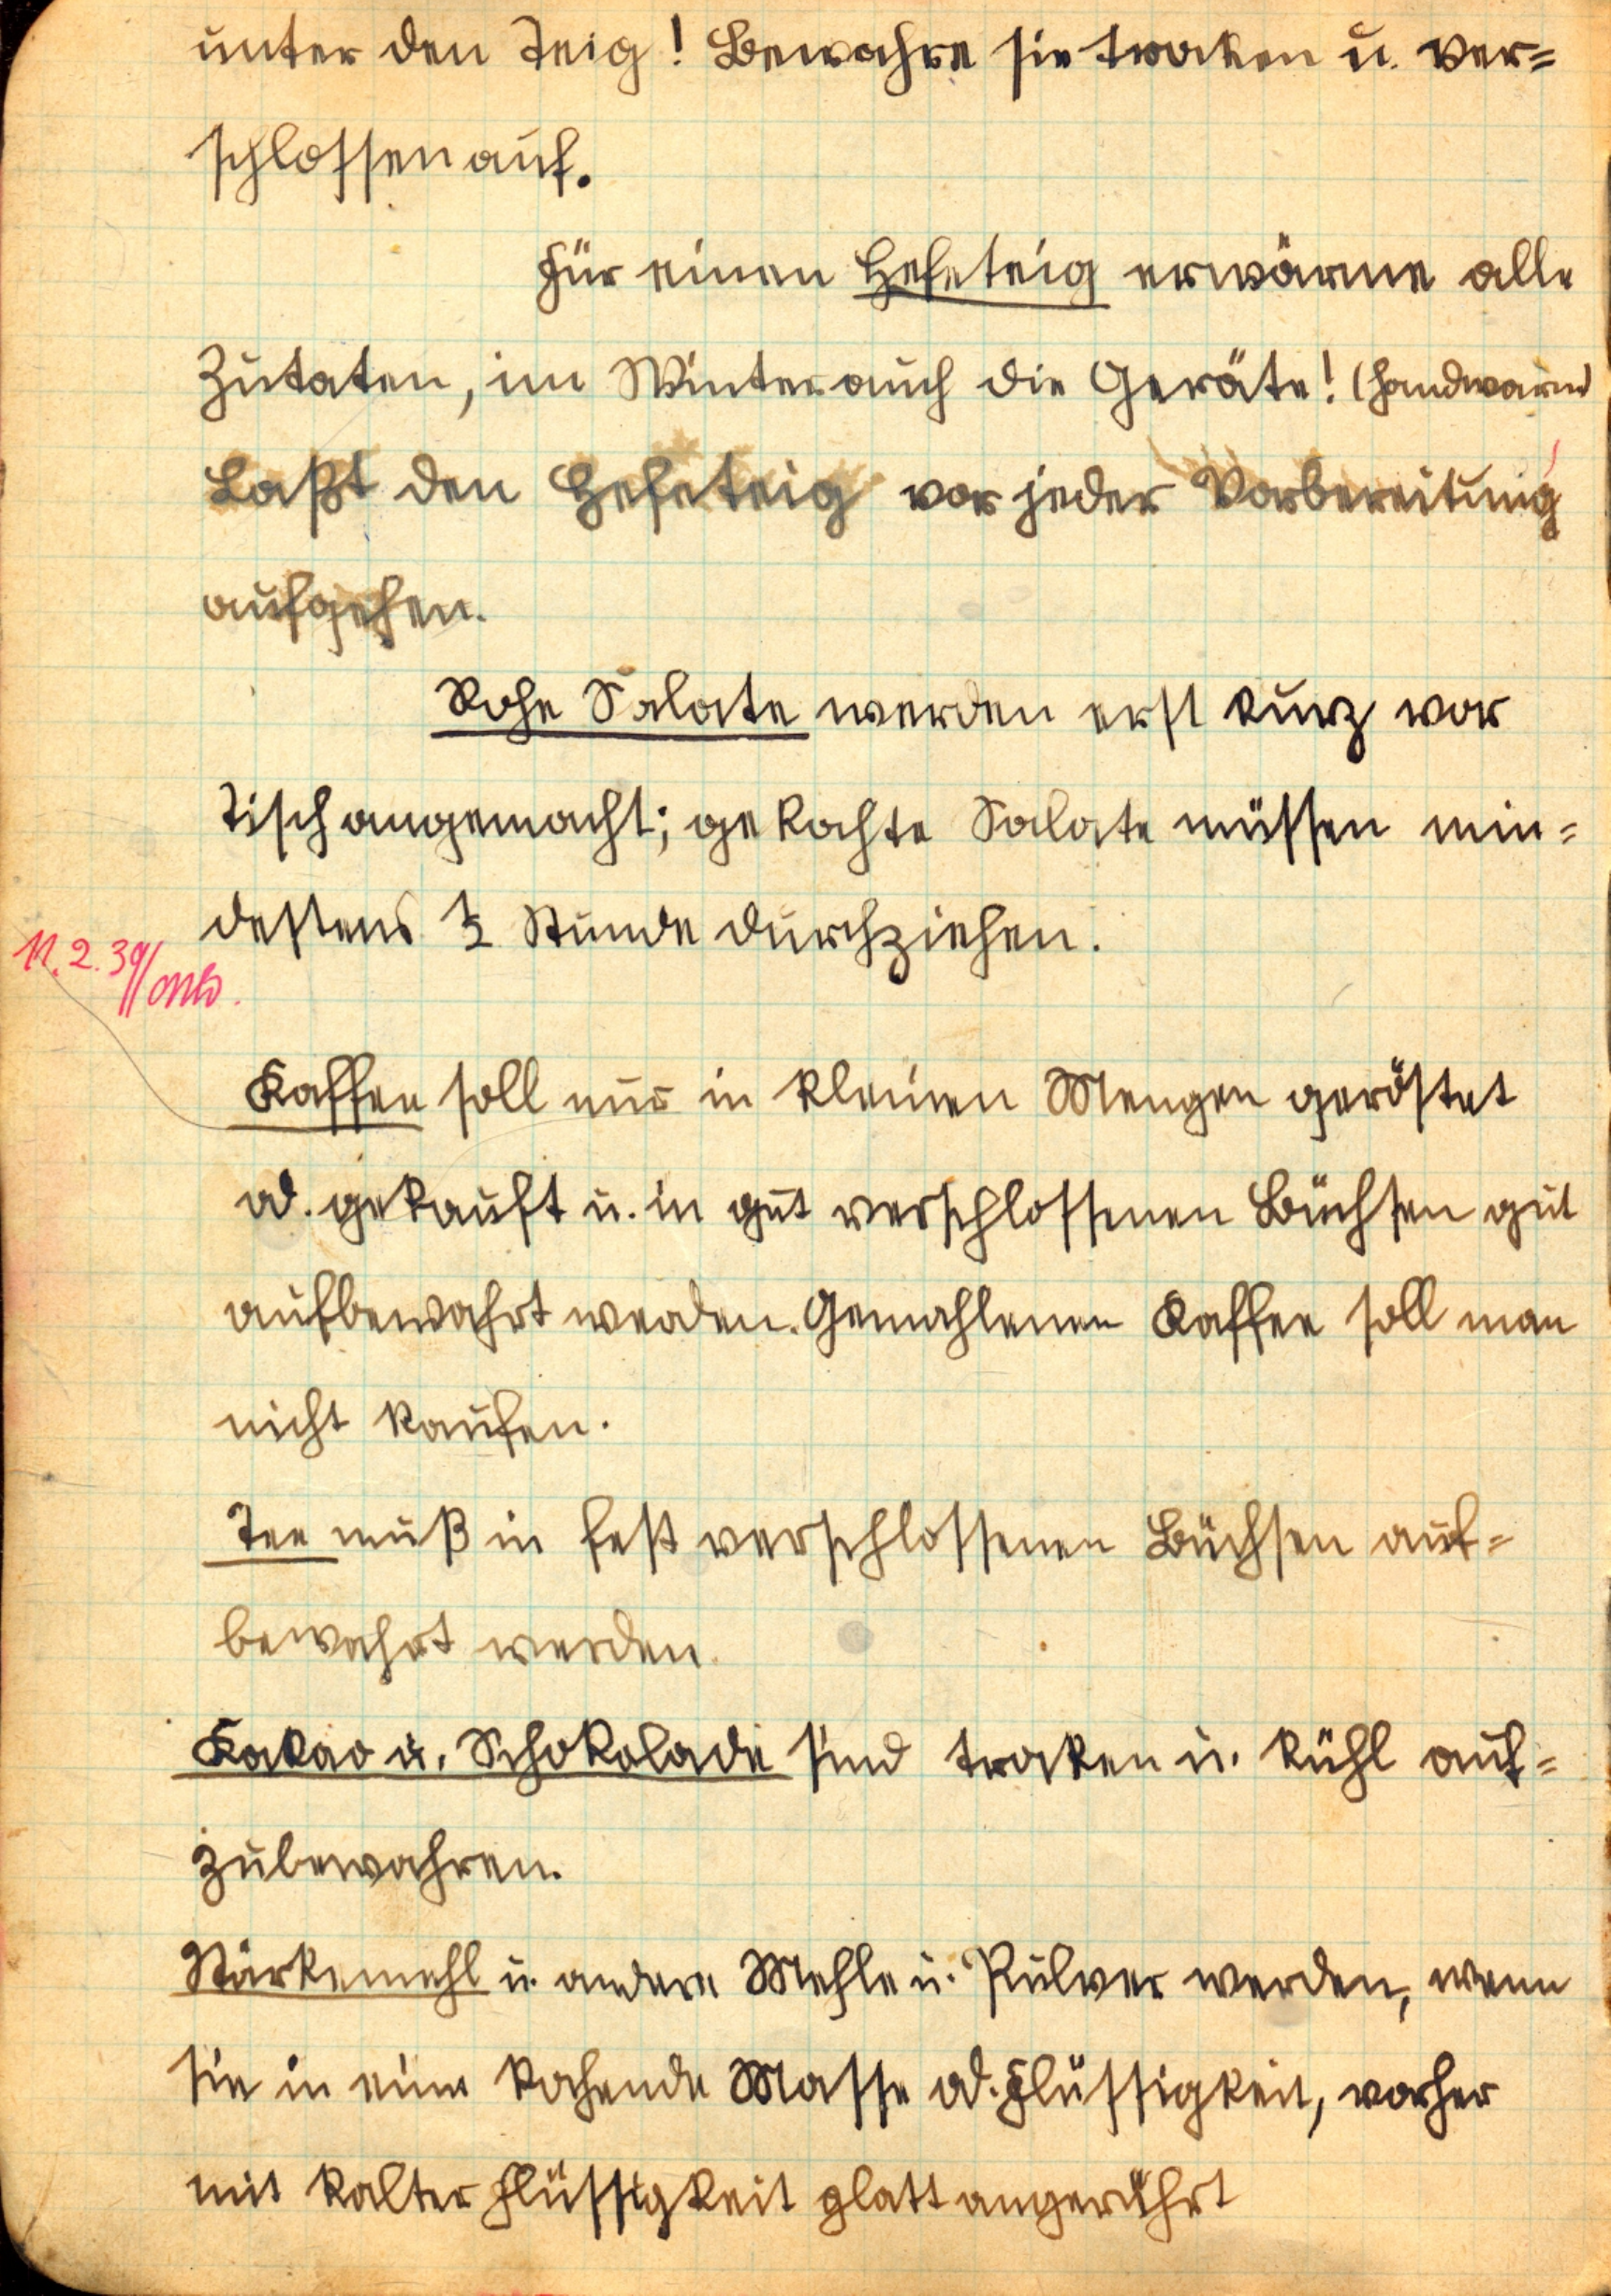 unter den Teig! Bewahre sie trocken u. ver=
schlossen auf.
Für einen Hefeteig erwärme alle
Zutaten, im Winter auch die Geräte! (handwarm
Laßt den Hefeteig vor jeder Vorbereitung
aufgehen.
Rohe Salate werden erst kurz vor
Tisch angemacht; gekochte Salate müssen min=
destens ½ Stunde durchziehen.
11. 2. 39
Kaffee soll nur in kleinen Mengen geröstet
od. gekauft u. in gut verschlossenen Büchsen gut
aufbewahrt werden. Gemahlenen Kaffee soll man
nicht kaufen.
Tee muß in fest verschlossenen Büchsen auf=
bewahrt werden.
Kakao u. Schokolade sind trocken u. kühl auf=
zubewahren.
Stärkemehl u. andere Mehle u. Pulver werden, wenn
sie in eine kochende Masse od. Flüssigkeit, vorher
mit kalter Flüssigkeit glatt angerührt